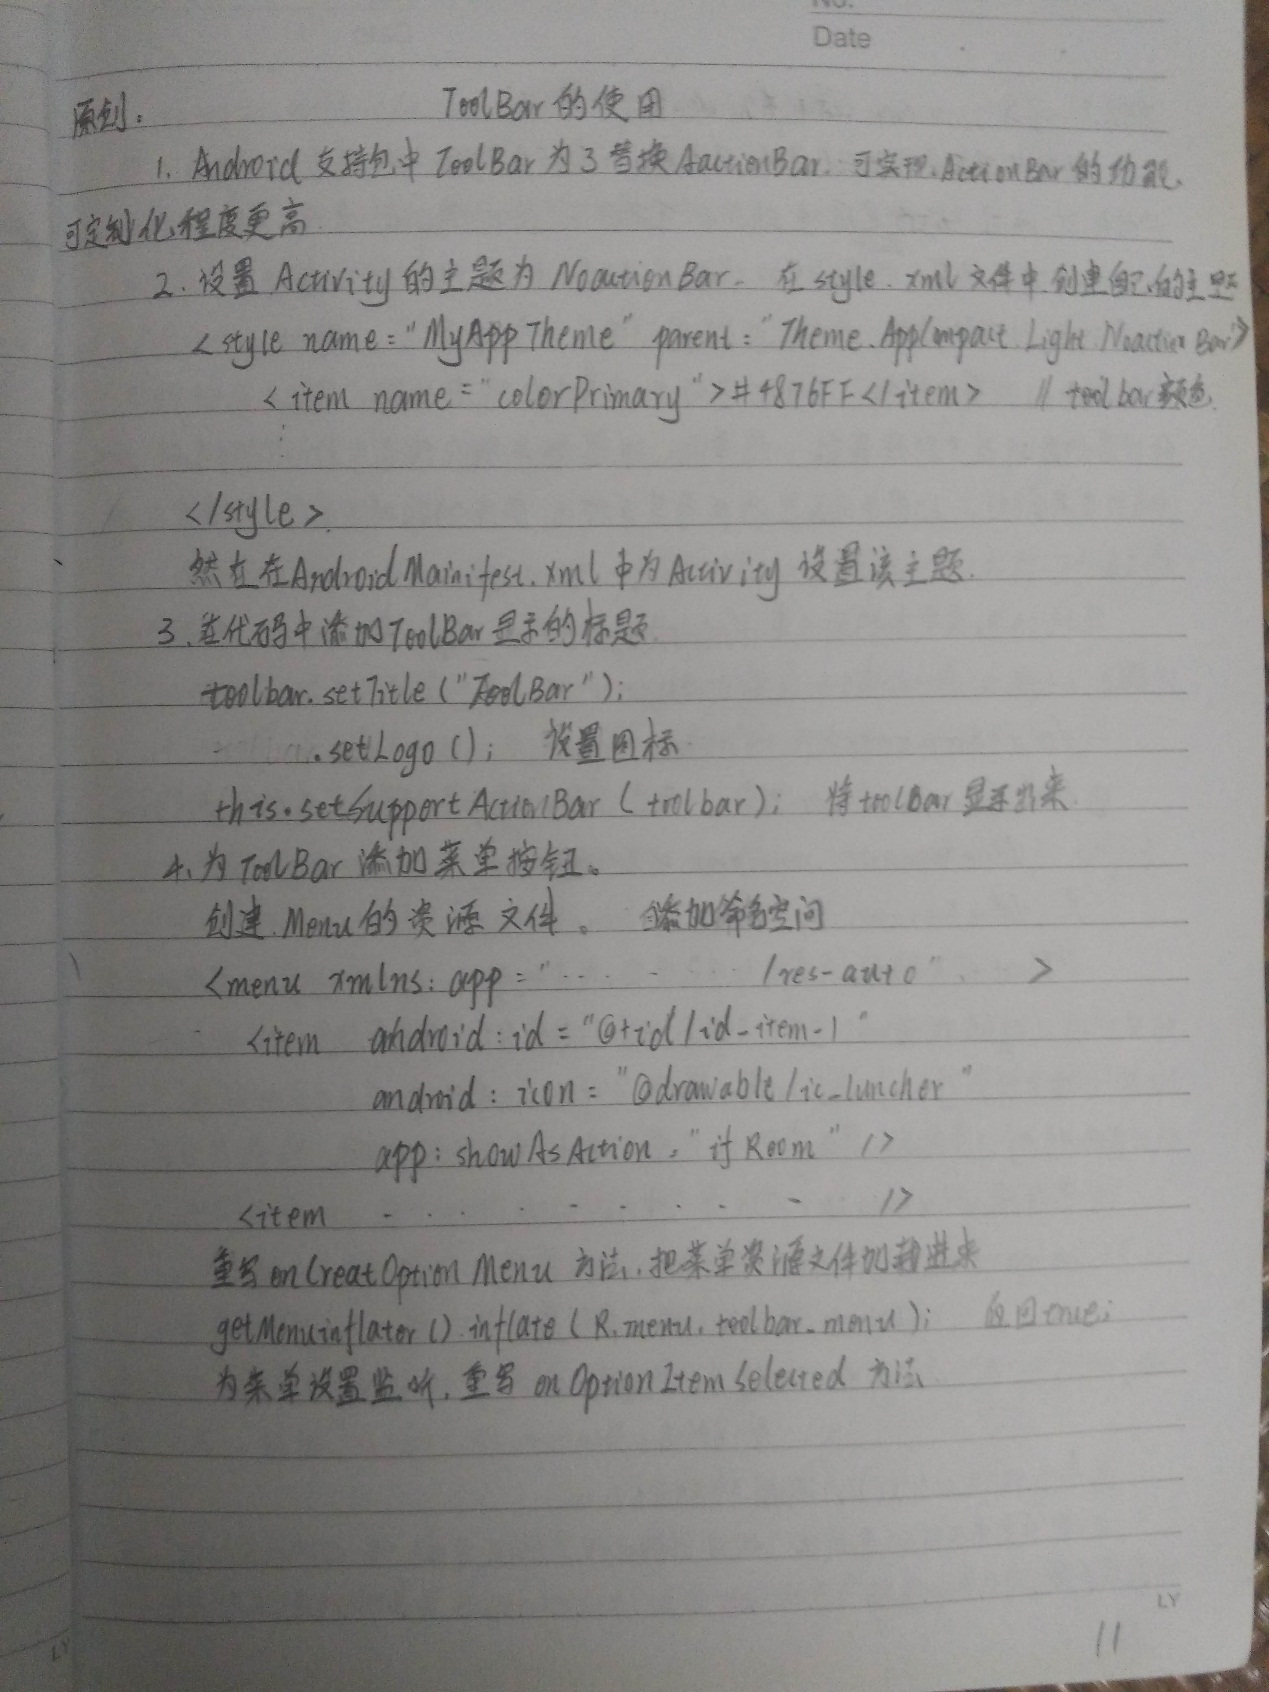 No.
Date
原创：
ToolBar的使用
1. Android 支持包中 ToolBar 为了替换 AactionBar. 可实现 ActionBar 的功能,
可定制化程度更高
2. 设置 Activity 的主题为 NoactionBar. 在 style.xml 文件中创建自己的主题
<style name="MyAppTheme" parent="Theme.AppCompact.Light.NoactionBar">
<item name="colorPrimary">#4876FF</item> // toolbar颜色
</style>
然在在AndroidMainifest.xml中为Activity 设置该主题.
3. 在代码中添加ToolBar显示的标题
toolbar.setTitle("ToolBar");
.setLogo(); 设置图标
this.setSupportActionBar(toolbar); 将toolBar显示出来
4. 为 ToolBar 添加菜单按钮。
创建 Menu的资源文件。 添加命名空间
<menu xmlns:app="......./res-auto" >
<item android:id="@+id/id-item-1"
android:icon="@drawable/ic_luncher"
app:showAsAction="ifRoom" />
<item ........ />
重写onCreatOptionMenu 方法,把菜单资源文件加载进来
getMenuinflator().inflate(R.menu.toolbar_menu); 返回true;
为菜单设置监听,重写 onOptionItemSelected 方法
LY
LY
11